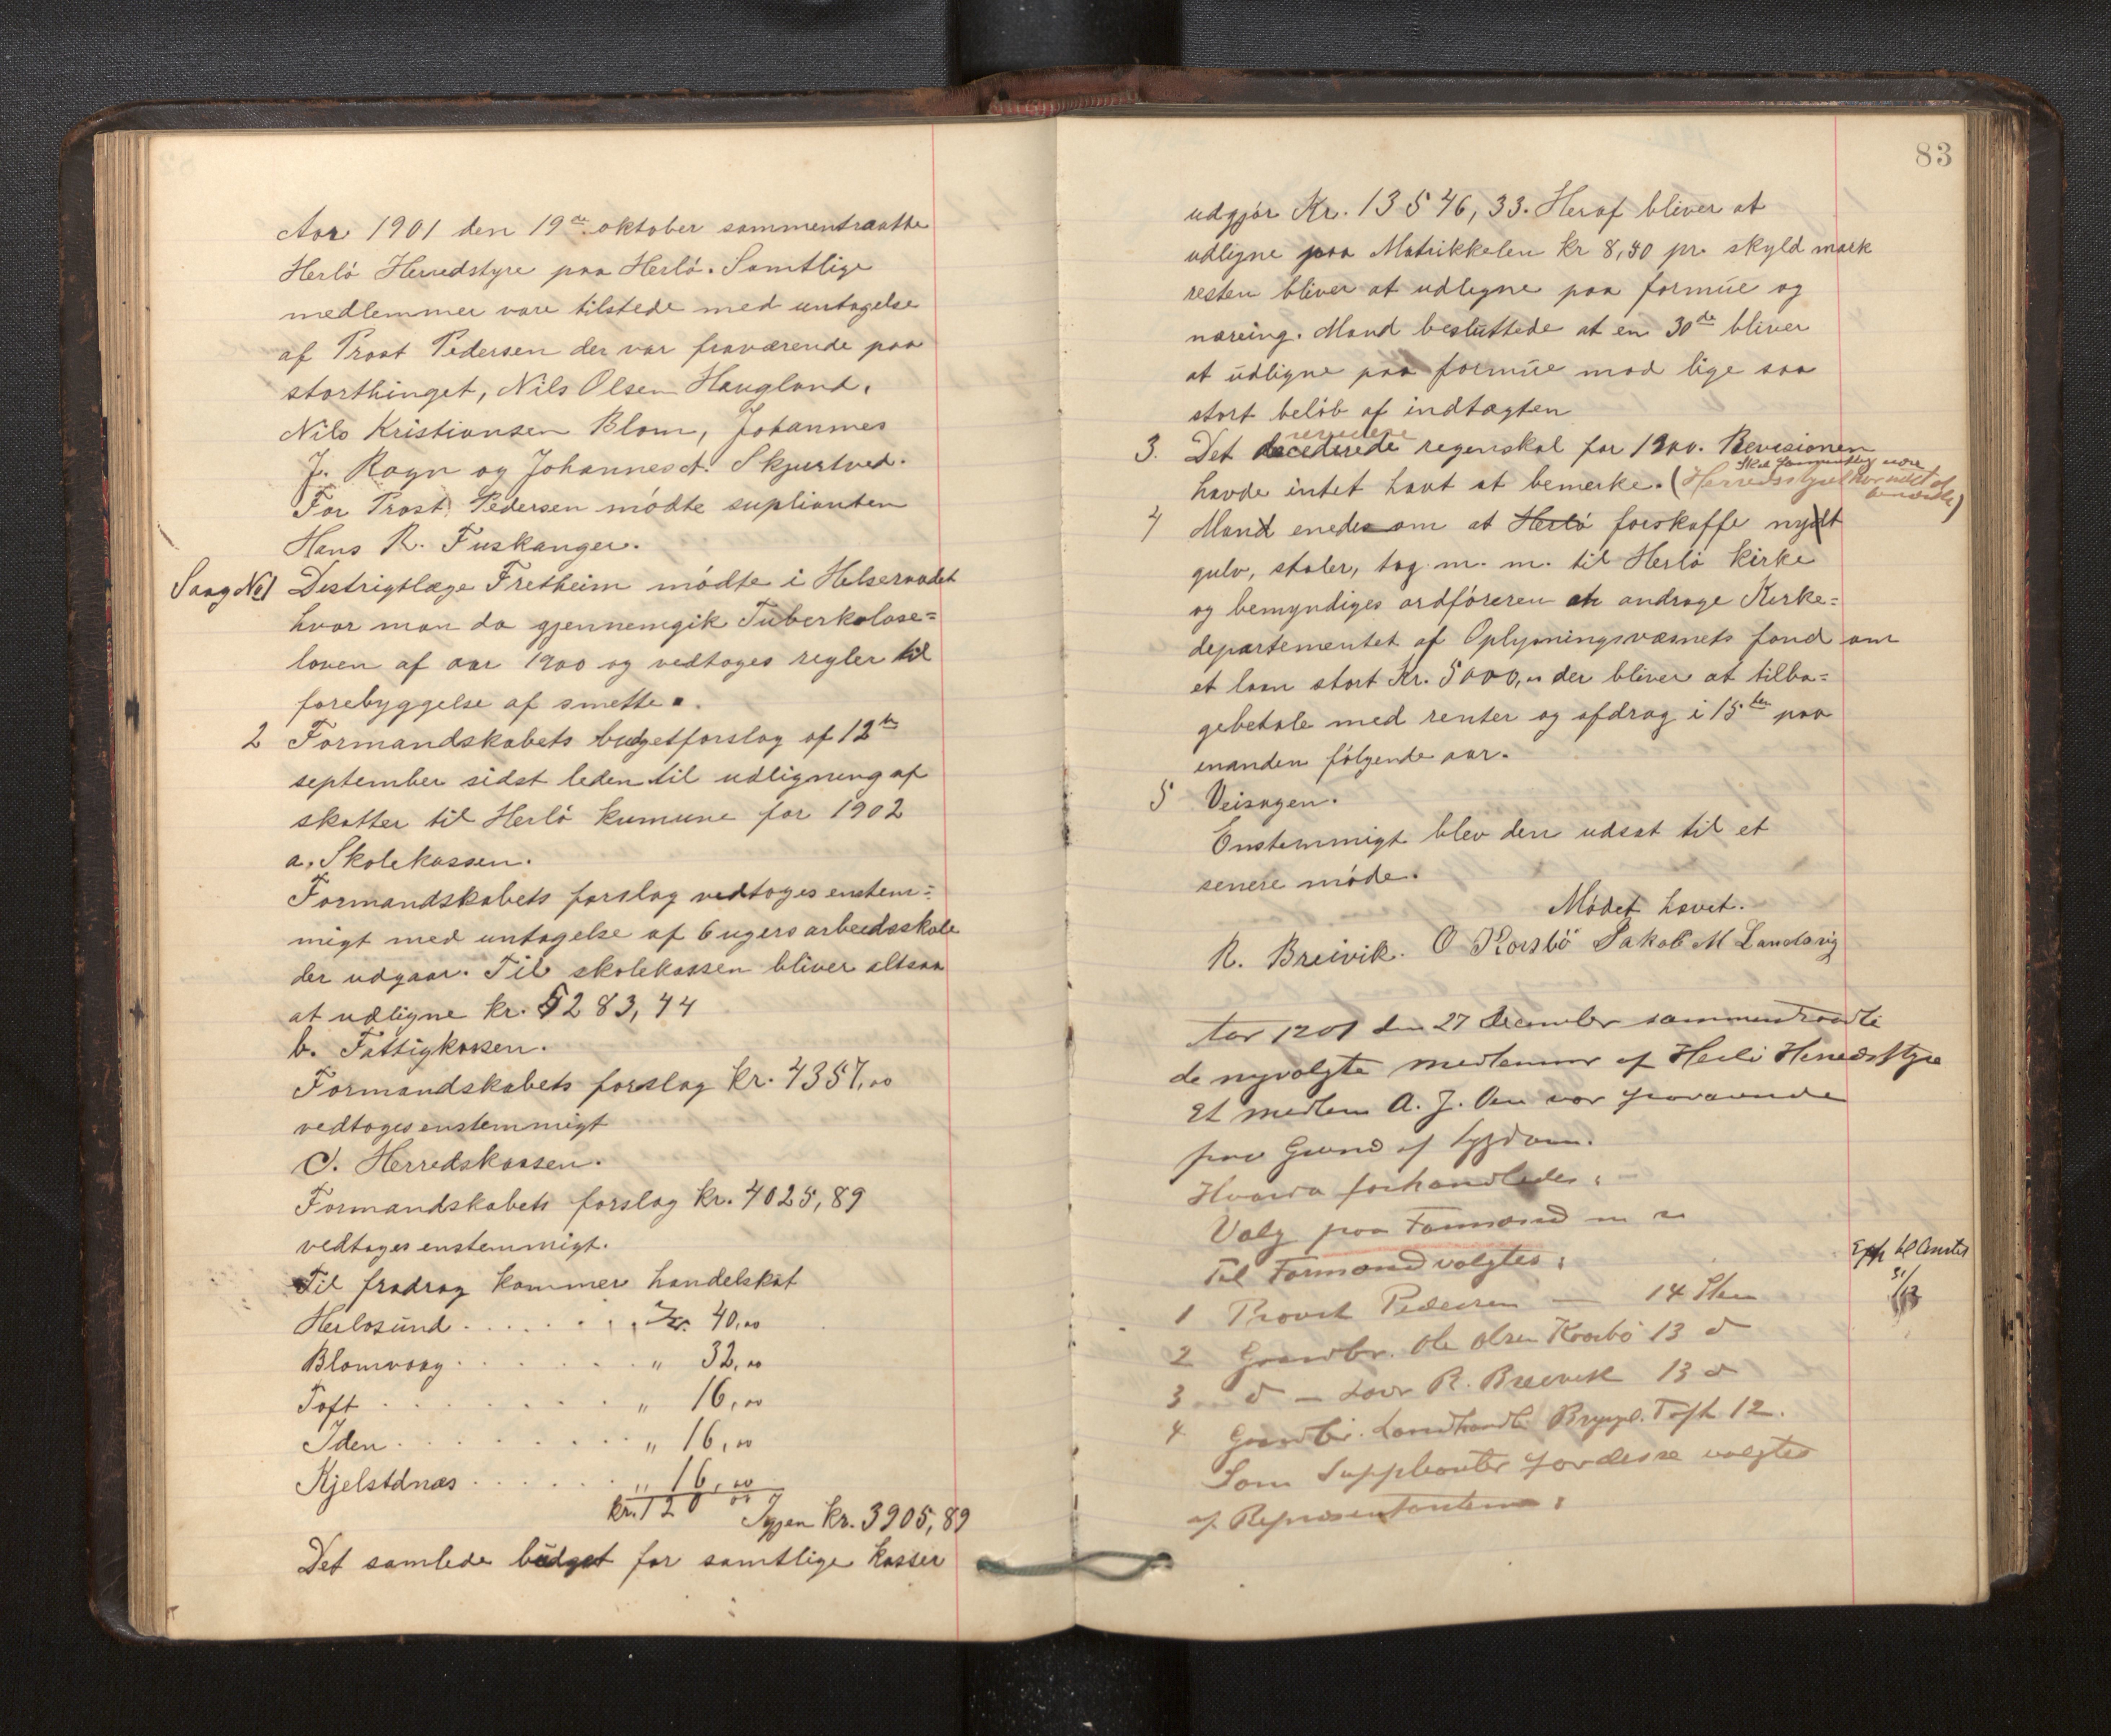 Aar 1901 den 19de oktober sammentraatte
Herlö Herredstyre paa Herlö. Samtlige
medlemmer vare tilstede med untagelse
af Prost Pedersen der var fraværende paa
storthinget, Nils Olsen Haugland,
Nils Kristiansen Blom, Johannes
J. Ragn og Johannes A. Skjurtved.
For Prost Pedersen mödte suplianten
Hans R. Fuskanger.
Saag No 1 Destrigtlæge Fretheim mödte i Helseraadet
hvor man da gjennemgik Tuberkolose=
loven af aar 1900 og vedtoges regler til
forebyggelse af smette.
2 Formandskabets budgetforslag af 12te
september sidst leden til udligning af
skatter til Herlö kumune for 1902
a. Skolekassen.
Formandskabets forslag vedtoges enstem=
migt med untagelse af 6 ugers arbeidsskole
der udgaar. Til skolekassen bliver altsaa
at udligne kr. 5283,44
b. Fattigkassen.
Formandskabets forslag kr. 4357,00
vedtoges enstemmigt
C. Herredskassen.
Formandskabets forslag kr. 4025,89
vedtages enstemmigt.
Til fradrag kommer handelskat
Herlosund . . . . . . . Kr. 40,00
Blomvaag . . . . . . . " 32,00
Toft . . . . . . . . " 16,00
Iden . . . . . . . . " 16,00
Kjelstdnæs . . . . . . " 16,00
kr. 120 00 Igjen kr. 3905,89
Det samlede budget for samtlige kasser
83
udgjör Kr. 13546,33. Heraf bliver at
udligne paa Matrikkelen kr 8,40 pr. skyld mark
resten bliver at udligne paa formue og
næreing. Mand besluttede at en 30de bliver
at udligne paa formue mod lige saa
stort belöb af indtægten
reviderede
3. Det decederede regenskal for 1900. Revesionen
Skal formentlig være
havde intet havt at bemerke. (Herredsstyret har intet at
bemærke)
4 Mand enedes om at Herlö forskaffe nydt
gulv, staler, tag m. m. til Herlö Kirke
og bemyndiges ordföreren at andrage Kirke=
departementet af Oplysningsvæsnets fond om
et laan stort Kr. 5000,00 der bliver at tilba=
gebetale med renter og afdrag i 15ten paa
enanden fölgende aar.
5 Veisagen.
Enstemmigt blev den udsat til et
senere möde.
Mödet hævet.
R. Breivik. O Korsbö Jakob M Landsvig
Aar 1901 den 27 December sammentraadte
de nyvalgte medlemmer af Herlö Herredsstyre
Et medlem A. J. Oen var fraværende
paa Grund af Sygdom.
Hvorda forhandledes:
Valg paa Formænd m m
Til Formænd valgtes:
1 Provst Pedersen — 14 Stem
2 Gaardbr. Ole Olsen Korsbö 13 d
3 d — Lars R. Breivik 13 d
4 Gaardbr. Landhandl. Toft 12.
Som Supplianter for disse valgtes
af Repræsentanterne:
til Amtet
31/12